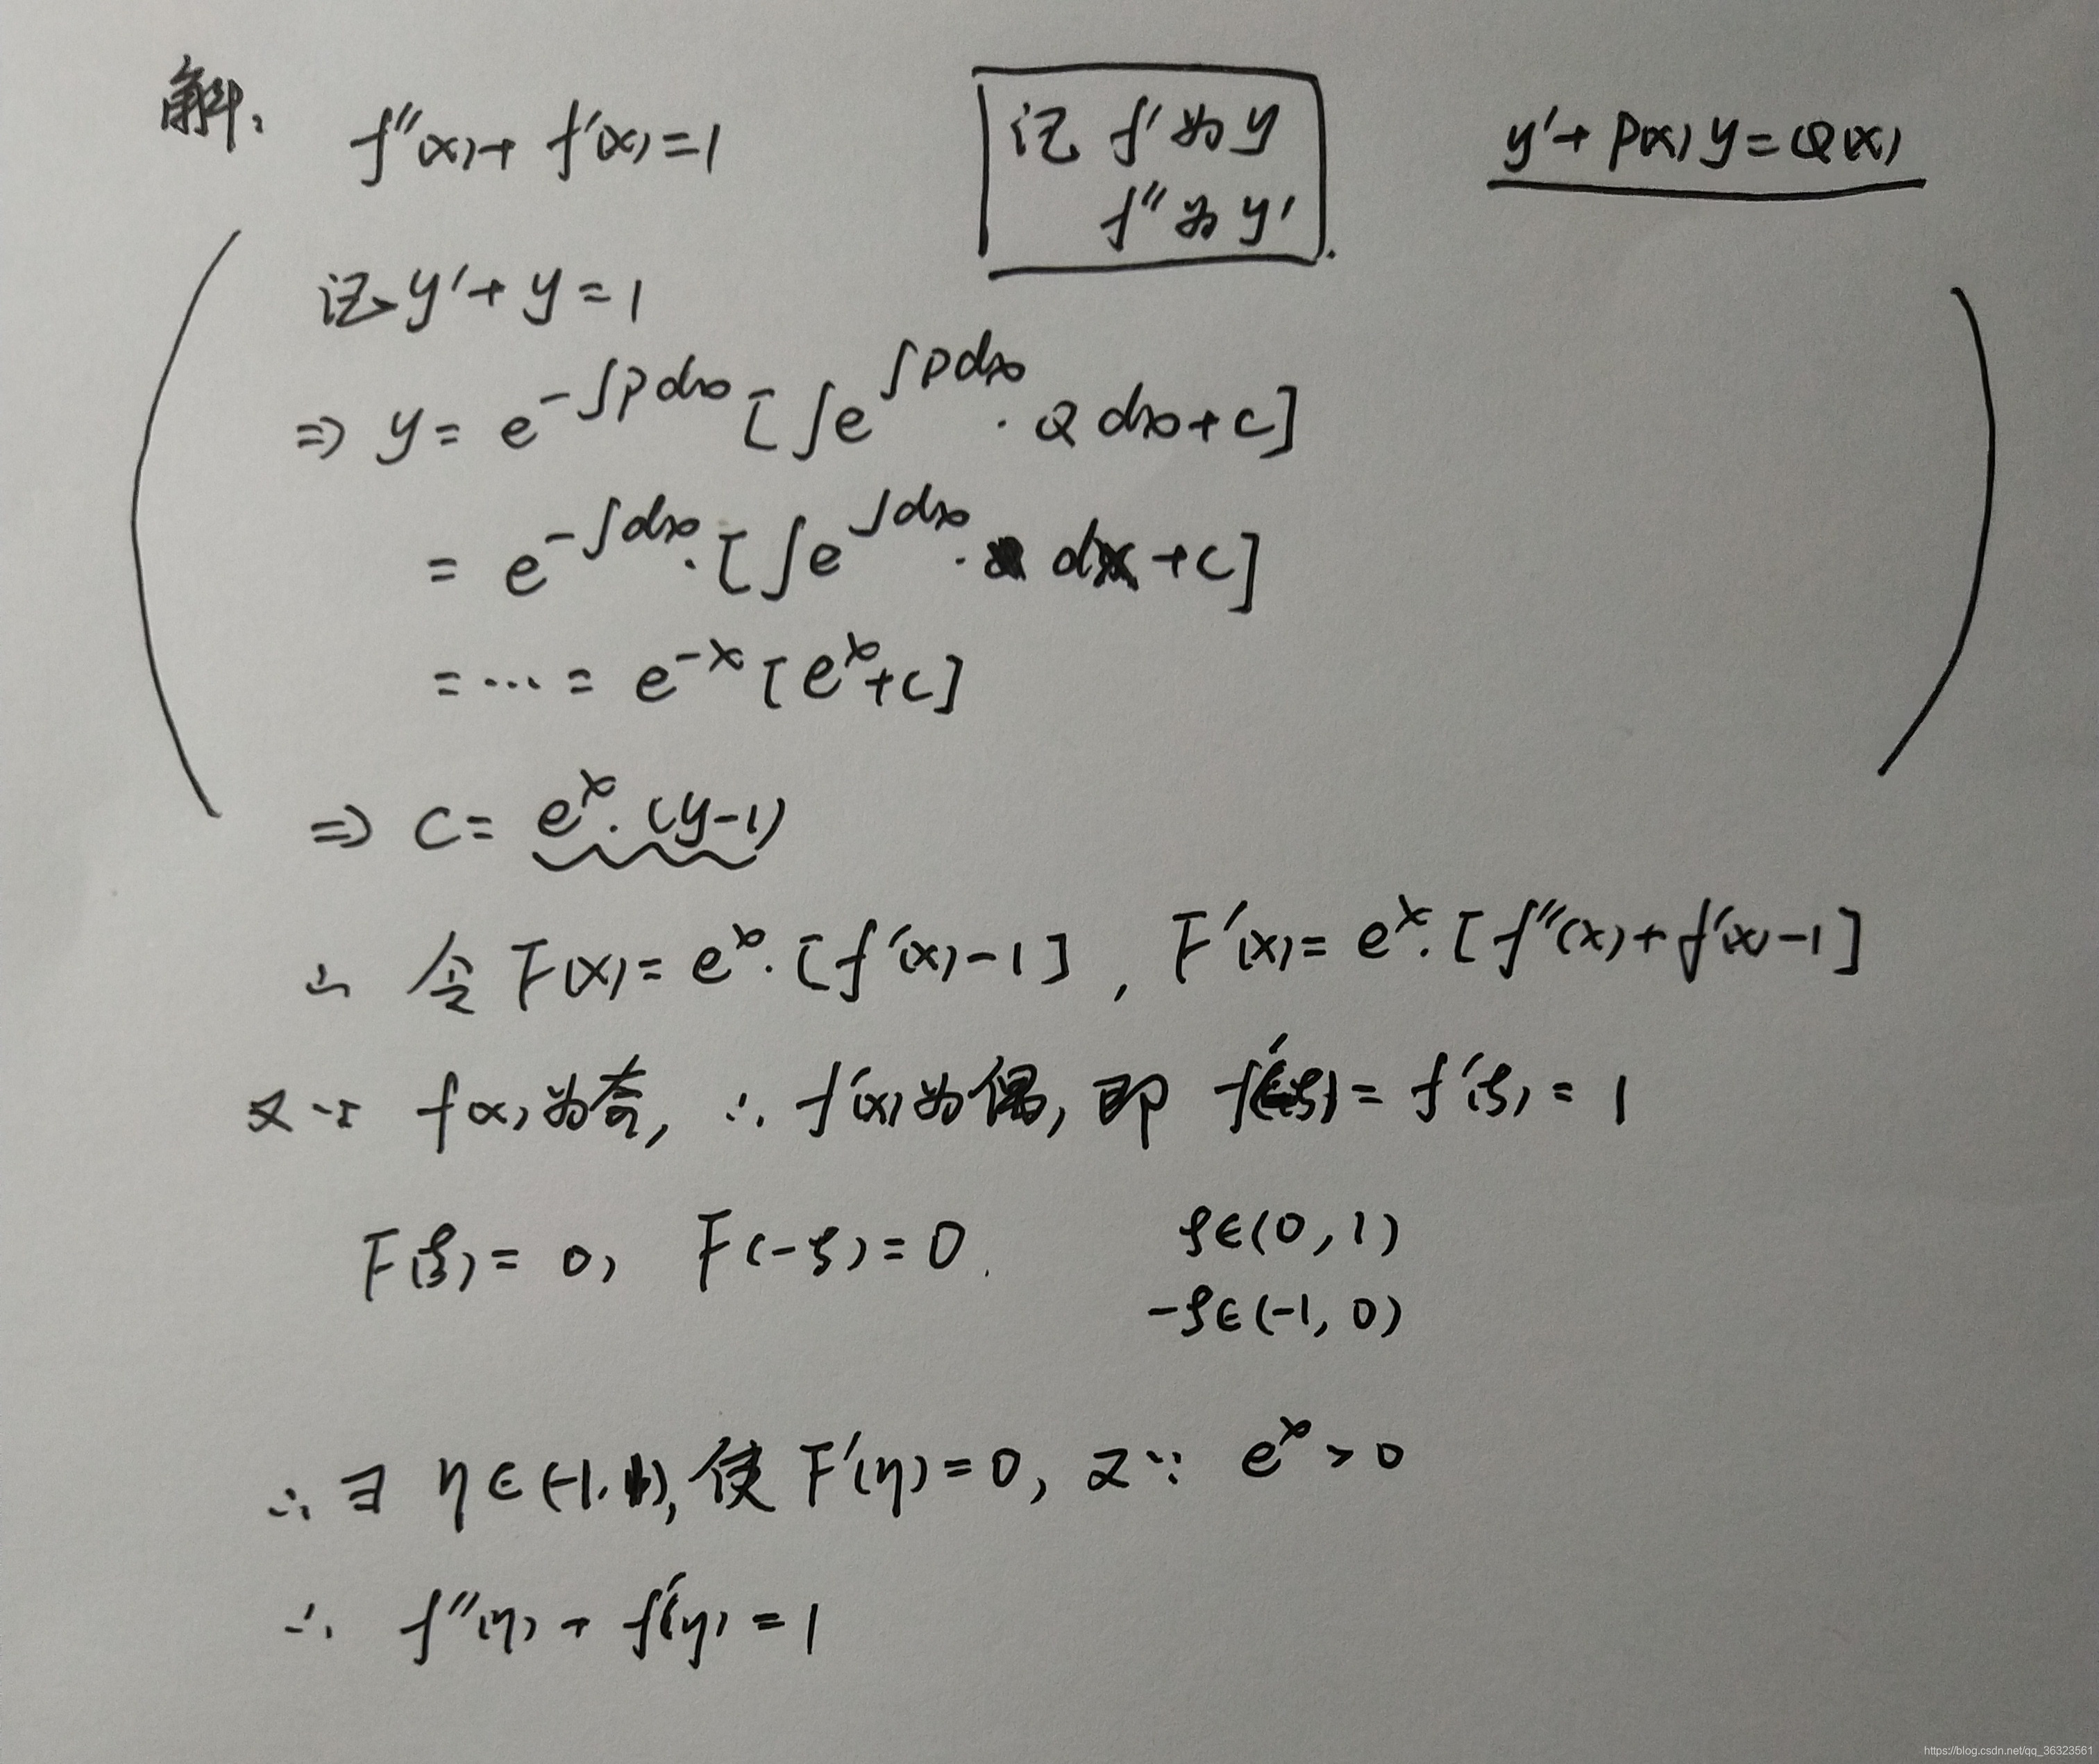 解:
f''(x)+f'(x)=1
记 f' 为 y
f'' 为 y'.
y'+P(x)y=Q(x)
记 y'+y=1
⇒ y = e^{-∫Pdx} [∫e^{∫Pdx}·Q dx+C]
= e^{-∫dx}·[∫e^{∫dx}· dx+C]
=⋯= e^{-x}[e^x+C]
⇒ C= e^x·(y-1)
∴ 令 F(x)= e^x·[f'(x)-1], F'(x)= e^x·[f''(x)+f'(x)-1]
又∵ f(x)为奇, ∴ f'(x)为偶, 即 f'(-ξ)= f'(ξ)= 1
F(ξ)= 0, F(-ξ)=0.
ξ∈(0,1)
-ξ∈(-1,0)
∴∃ η∈(-1,1), 使 F'(η)=0, 又∵ e^x>0
∴ f''(η)+f'(η)=1
https://blog.csdn.net/qq_36323561